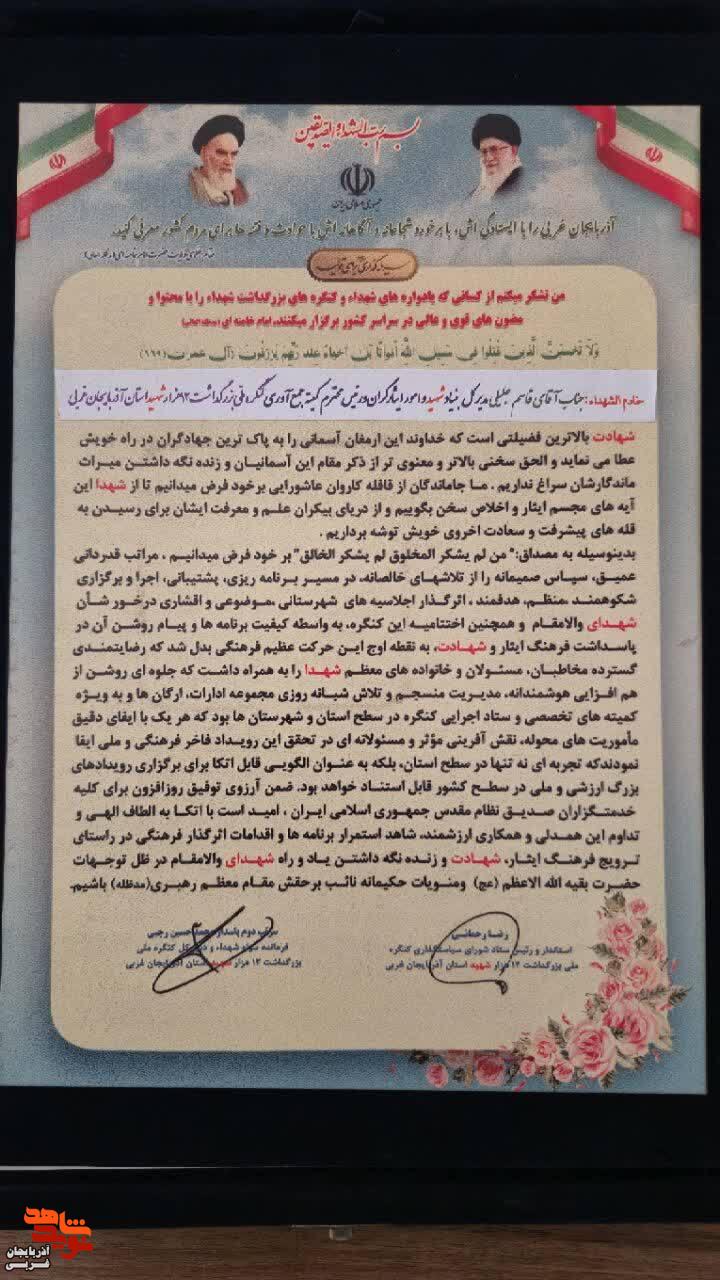 بسم رب الشهداء والصدیقین
جمهوری اسلامی ایران
آذربایجان غربی را با ایستادگی اش، با برخورد شجاعانه و آگاهانه اش با حوادث و فتنه ها برای مردم کشور معرفی کنید.
من تشکر میکنم از کسانی که یادواره های شهداء و کنگره های بزرگداشت شهداء را با محتوا و
مضون های قوی و عالی در سراسر کشور برگزار میکنند. امام خامنه ای
وَلَا تَحْسَبَنَّ الَّذِينَ قُتِلُوا فِي سَبِيلِ اللَّهِ أَمْوَاتًا بَلْ أَحْيَاءٌ عِنْدَ رَبِّهِمْ يُرْزَقُونَ (آل عمران ۱۶۹)
خادم الشهداء: جناب آقای قاسم جلیلی مدیر کل بنیاد شهید و امور ایثارگران و رئیس محترم کمیته جمع آوری کنگره ملی بزرگداشت ۱۲ هزار شهید استان آذربایجان غربی
شهادت بالاترین فضیلتی است که خداوند این ارمغان آسمانی را به پاک ترین جهادگران در راه خویش
عطا می نماید و الحق سخنی بالاتر و معنوی تر از ذکر مقام این آسمانیان و زنده نگه داشتن میراث
ماندگارشان سراغ نداریم . ما جاماندگان از قافله کاروان عاشورایی برخود فرض میدانیم تا از شهدا این
آیه های مجسم ایثار و اخلاص سخن بگوییم و از دریای بیکران علم و معرفت ایشان برای رسیدن به
قله های پیشرفت و سعادت اخروی خویش توشه برداریم .
بدینوسیله به مصداق:" من لم یشکر المخلوق لم یشکر الخالق" بر خود فرض میدانیم ، مراتب قدردانی
عمیق، سپاس صمیمانه را از تلاشهای خالصانه، در مسیر برنامه ریزی، پشتیبانی، اجرا و برگزاری
شکوهمند ،منظم، هدفمند ، اثرگذار اجلاسیه های شهرستانی ،موضوعی و اقشاری درخور شأن
شهدای والامقام و همچنین اختتامیه این کنگره، به واسطه کیفیت برنامه ها و پیام روشن آن در
پاسداشت فرهنگ ایثار و شهادت، به نقطه اوج این حرکت عظیم فرهنگی بدل شد که رضایتمندی
گسترده مخاطبان، مسئولان و خانواده های معظم شهدا را به همراه داشت که جلوه ای روشن از
هم افزایی هوشمندانه، مدیریت منسجم و تلاش شبانه روزی مجموعه ادارات، ارگان ها و به ویژه
کمیته های تخصصی و ستاد اجرایی کنگره در سطح استان و شهرستان ها بود که هر یک با ایفای دقیق
مأموریت های محوله، نقش آفرینی مؤثر و مسئولانه ای در تحقق این رویداد فاخر فرهنگی و ملی ایفا
نمودندکه تجربه ای نه تنها در سطح استان، بلکه به عنوان الگویی قابل اتکا برای برگزاری رویدادهای
بزرگ ارزشی و ملی در سطح کشور قابل استناد خواهد بود. ضمن آرزوی توفیق روزافزون برای کلیه
خدمتگزاران صدیق نظام مقدس جمهوری اسلامی ایران ، امید است با اتکا به الطاف الهی و
تداوم این همدلی و همکاری ارزشمند، شاهد استمرار برنامه ها و اقدامات اثرگذار فرهنگی در راستای
ترویج فرهنگ ایثار، شهادت و زنده نگه داشتن یاد و راه شهدای والامقام در ظل توجهات
حضرت بقیه الله الاعظم (عج) ومنویات حکیمانه نائب برحقش مقام معظم رهبری(مدظله) باشیم.
رضا رحمانی
استاندار و رئیس ستاد شورای سیاستگذاری کنگره
ملی بزرگداشت ۱۲ هزار شهید استان آذربایجان غربی
سرتیپ دوم پاسدار محمدحسین رجبی
فرمانده سپاه شهداء و دبیر کل کنگره ملی
بزرگداشت ۱۲ هزار شهید استان آذربایجان غربی
نوید شاهد
آذربایجان
غربی